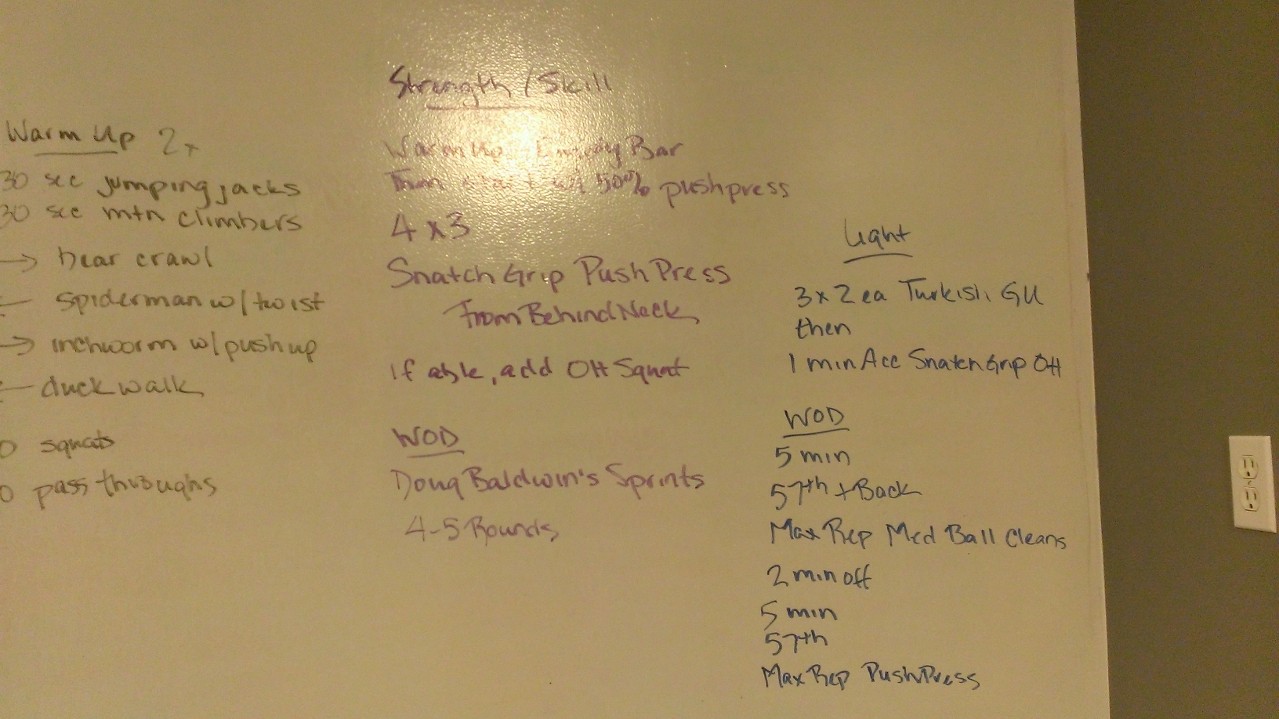 Warm Up 2x
30 sec jumping jacks
30 sec mtn climbers
→ bear crawl
← spiderman w/ twist
→ inchworm w/ pushup
← duck walk
0 squats
0 pass throughs
Strength / Skill
Warm Up Empty Bar
Then start w/ 50% pushpress
4 x 3
Snatch Grip Push Press
From Behind Neck
If able, add OH Squat
WOD
Doug Baldwin's Sprints
4-5 Rounds
Light
3 x 2 ea Turkish GU
then
1 min Acc Snatch Grip OH
WOD
5 min
57th + Back
Max Rep Med Ball Cleans
2 min off
5 min
57th
Max Rep Push Press